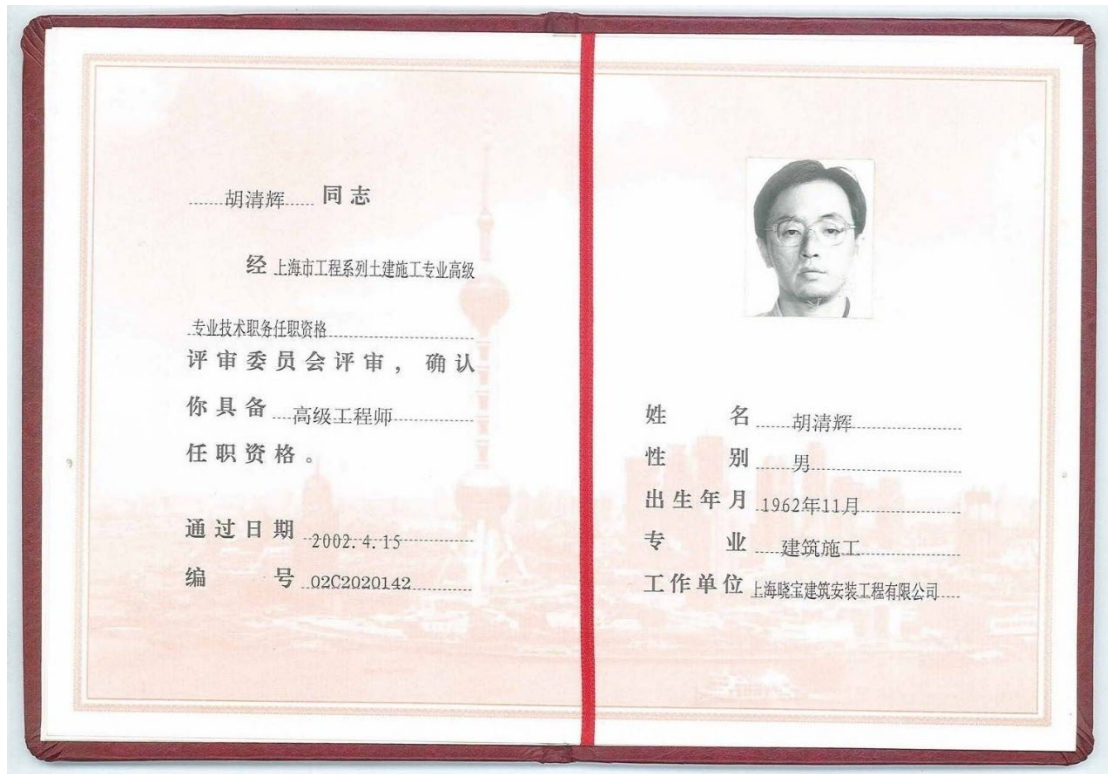 胡清辉 同志
经 上海市工程系列土建施工专业高级
专业技术职务任职资格
评审委员会评审，确认
你具备 高级工程师
任职资格。
通过日期 2002.4.15
编号 02C2020142
姓名 胡清辉
性别 男
出生年月 1962年11月
专业 建筑施工
工作单位 上海晓宝建筑安装工程有限公司